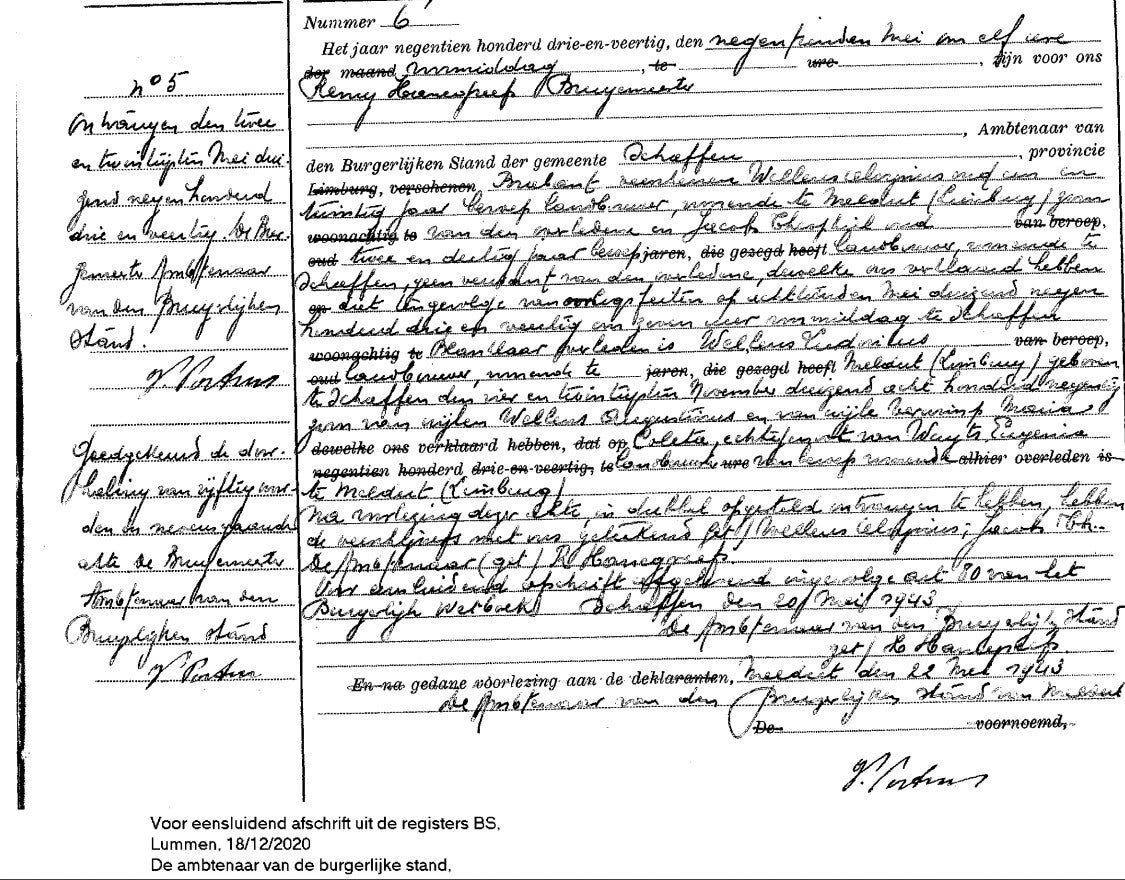 Nummer 6
Het jaar negentien honderd drie-en-veertig, den negentienden Mei om elf ure
der maand voormiddag, te ure, zijn voor ons
Remy Haenegreefs Burgemeester
, Ambtenaar van
den Burgerlijken Stand der gemeente Schaffen, provincie
Limburg, verschenen Brabant verschenen Wellens Aloysius oud een en
twintig jaar beroep landbouwer, wonende te Meldert (Limburg) zoon
woonachtig te van den overledene en Jacobs Theophiel oud van beroep,
oud twee en dertig jaar beroep jaren, die gezegd heeft landbouwer, wonende te
Schaffen, geen verwant van den overledene, dewelke ons verklaard hebben
en dat ingevolge van oorlogsfeiten op achttienden Mei duizend negen
honderd drie en veertig om zeven uur voormiddag te Schaffen
woonachtig te overleden is Wellens Ludovicus van beroep,
oud landbouwer, wonende te jaren, die gezegd heeft Meldert (Limburg) geboren
te Schaffen den vier en twintigsten November duizend acht honderd negentig
zoon van wijlen Wellens Augustinus en van wijle Maria
dewelke ons verklaard hebben, dat op Coleta, echtgenoot van Wuyts Eugenia
negentien honderd drie-en-veertig, te landbouwster ure van beroep wonende alhier overleden is
te Meldert (Limburg)
Na voorlezing dezer akte, in dubbel opgesteld ontvangen te hebben, hebben
de verschijners met ons geteekend get/ Wellens Aloysius; Jacobs Th.
De Ambtenaar (get) R Haenegreefs.
Voor eensluidend afschrift afgeleverd ingevolge art 80 van het
Burgerlijk Wetboek Schaffen den 20 Mei 1943
De Ambtenaar van den Burgerlijke Stand
get/ R Haenegreefs.
En na gedane voorlezing aan de deklaranten, Meldert den 22 Mei 1943
De Ambtenaar van den Burgerlijken Stand van Meldert
De voornoemd,
n° 5
Ontvangen den twee
en twintigsten Mei dui-
zend negen honderd
drie en veertig. De Bur-
gemeester Ambtenaar
van den Burgerlijken
Stand.
Goedgekeurd de door-
haling van vijftig woor-
den in nevensgaande
akte De Burgemeester
Ambtenaar van den
Burgerlijken Stand
Voor eensluidend afschrift uit de registers BS,
Lummen, 18/12/2020
De ambtenaar van de burgerlijke stand,